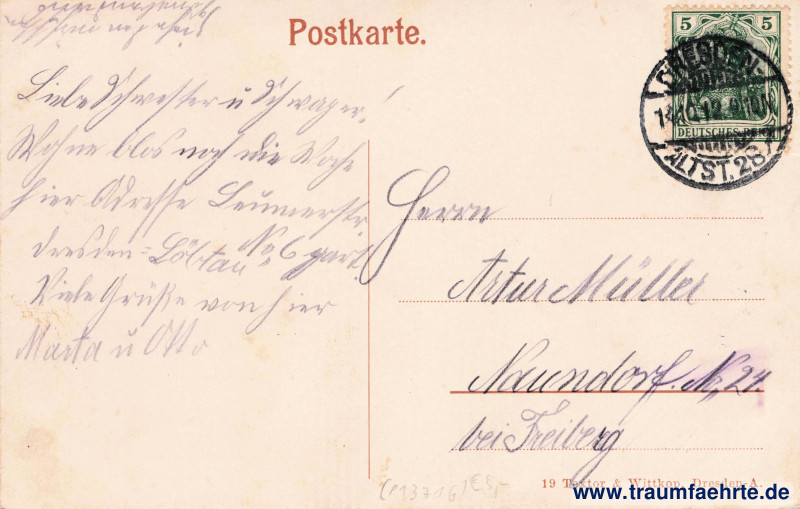 Postkarte.
5 5
DEUTSCHES REICH
DRESDEN-
ALTST. 28
Liebe Schwester u Schwager!
Wohne blos noch die Woche
hier Adresse
dresden = Löbtau No 6 part.
Viele Grüße von hier
Marta u Otto
Herrn
Artur Müller
Naundorf. No, 24.
bei Freiberg
19 Textor & Wittkop, Dresden-A.
(P13716) €5,-
www.traumfaehrte.de